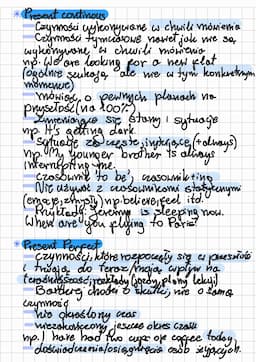 Present continous
Czynności wykonywane w chwili mówienia
Czynności tymczasowe nawet jak nie są
wykonywane w chwili mówienia
np. We are looking for a new flat
(ogólnie szukają, ale nie w tym konkretnym
momencie)
mówiąc o pewnych planach na
przyszłość (na 100%)
Zmieniające się stany i sytuacje
np. It's getting dark.
Sytuacje zbyt częste, irytujące (+always)
np. My younger brother is always
interrupting me.
czasownik to be, czasownik + ing
Nie używać z czasownikami statycznymi
(emocje, zmysły) np. believe, feel itd
Przykłady: Jeremy is sleeping now.
Where are you flying to Paris?
Present Perfect
czynności, które rozpoczęły się w przeszłości
i trwają do teraz/mają wpływ na
teraźniejszość
Bardziej chodzi o skutki, nie o samą
czynność
Nie określony czas
niezakończony jeszcze okres czasu
np. I have had two cups of coffee today
doświadczenia/osiągnięcia osób żyjących.